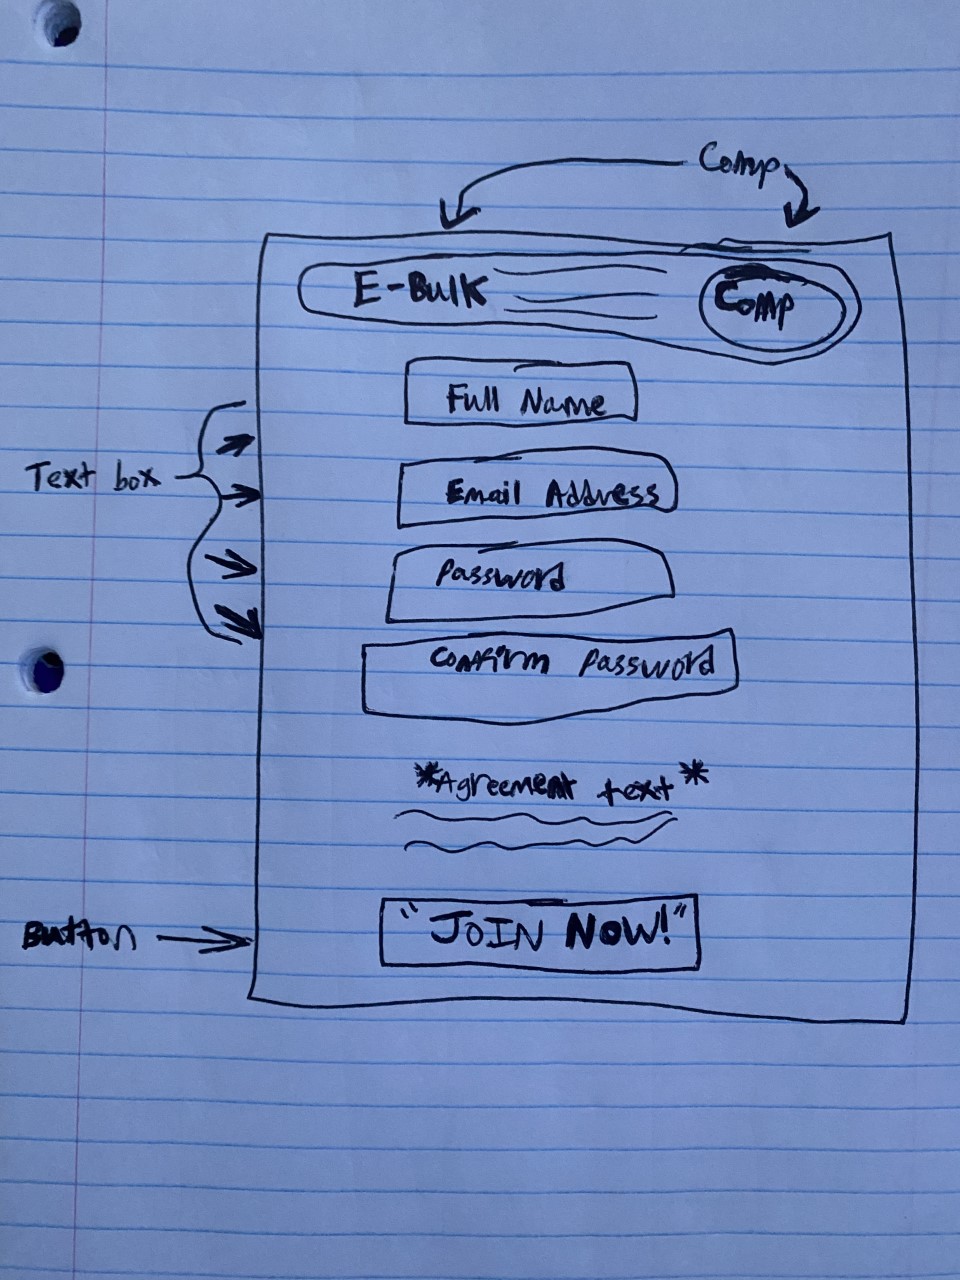 Comp
E-Bulk
Comp
Full Name
Text box
Email Address
Password
Confirm Password
*Agreement text*
Button
"JOIN NOW!"